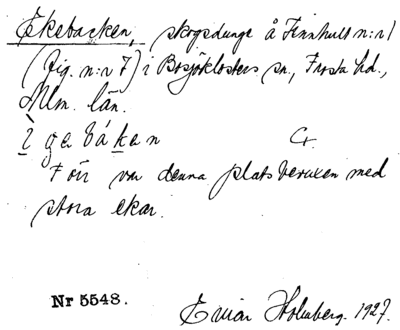 Ekebacken, skogsdunge å Finnhult n:r 1
(fig. n:r 7) i Bosjöklosters sn., Frosta hd.,
Mlm. län.
ègebáken Cr.
Förr var denna plats beväxen med
stora ekar.
Nr 5548.
Einar Holmberg. 1927.